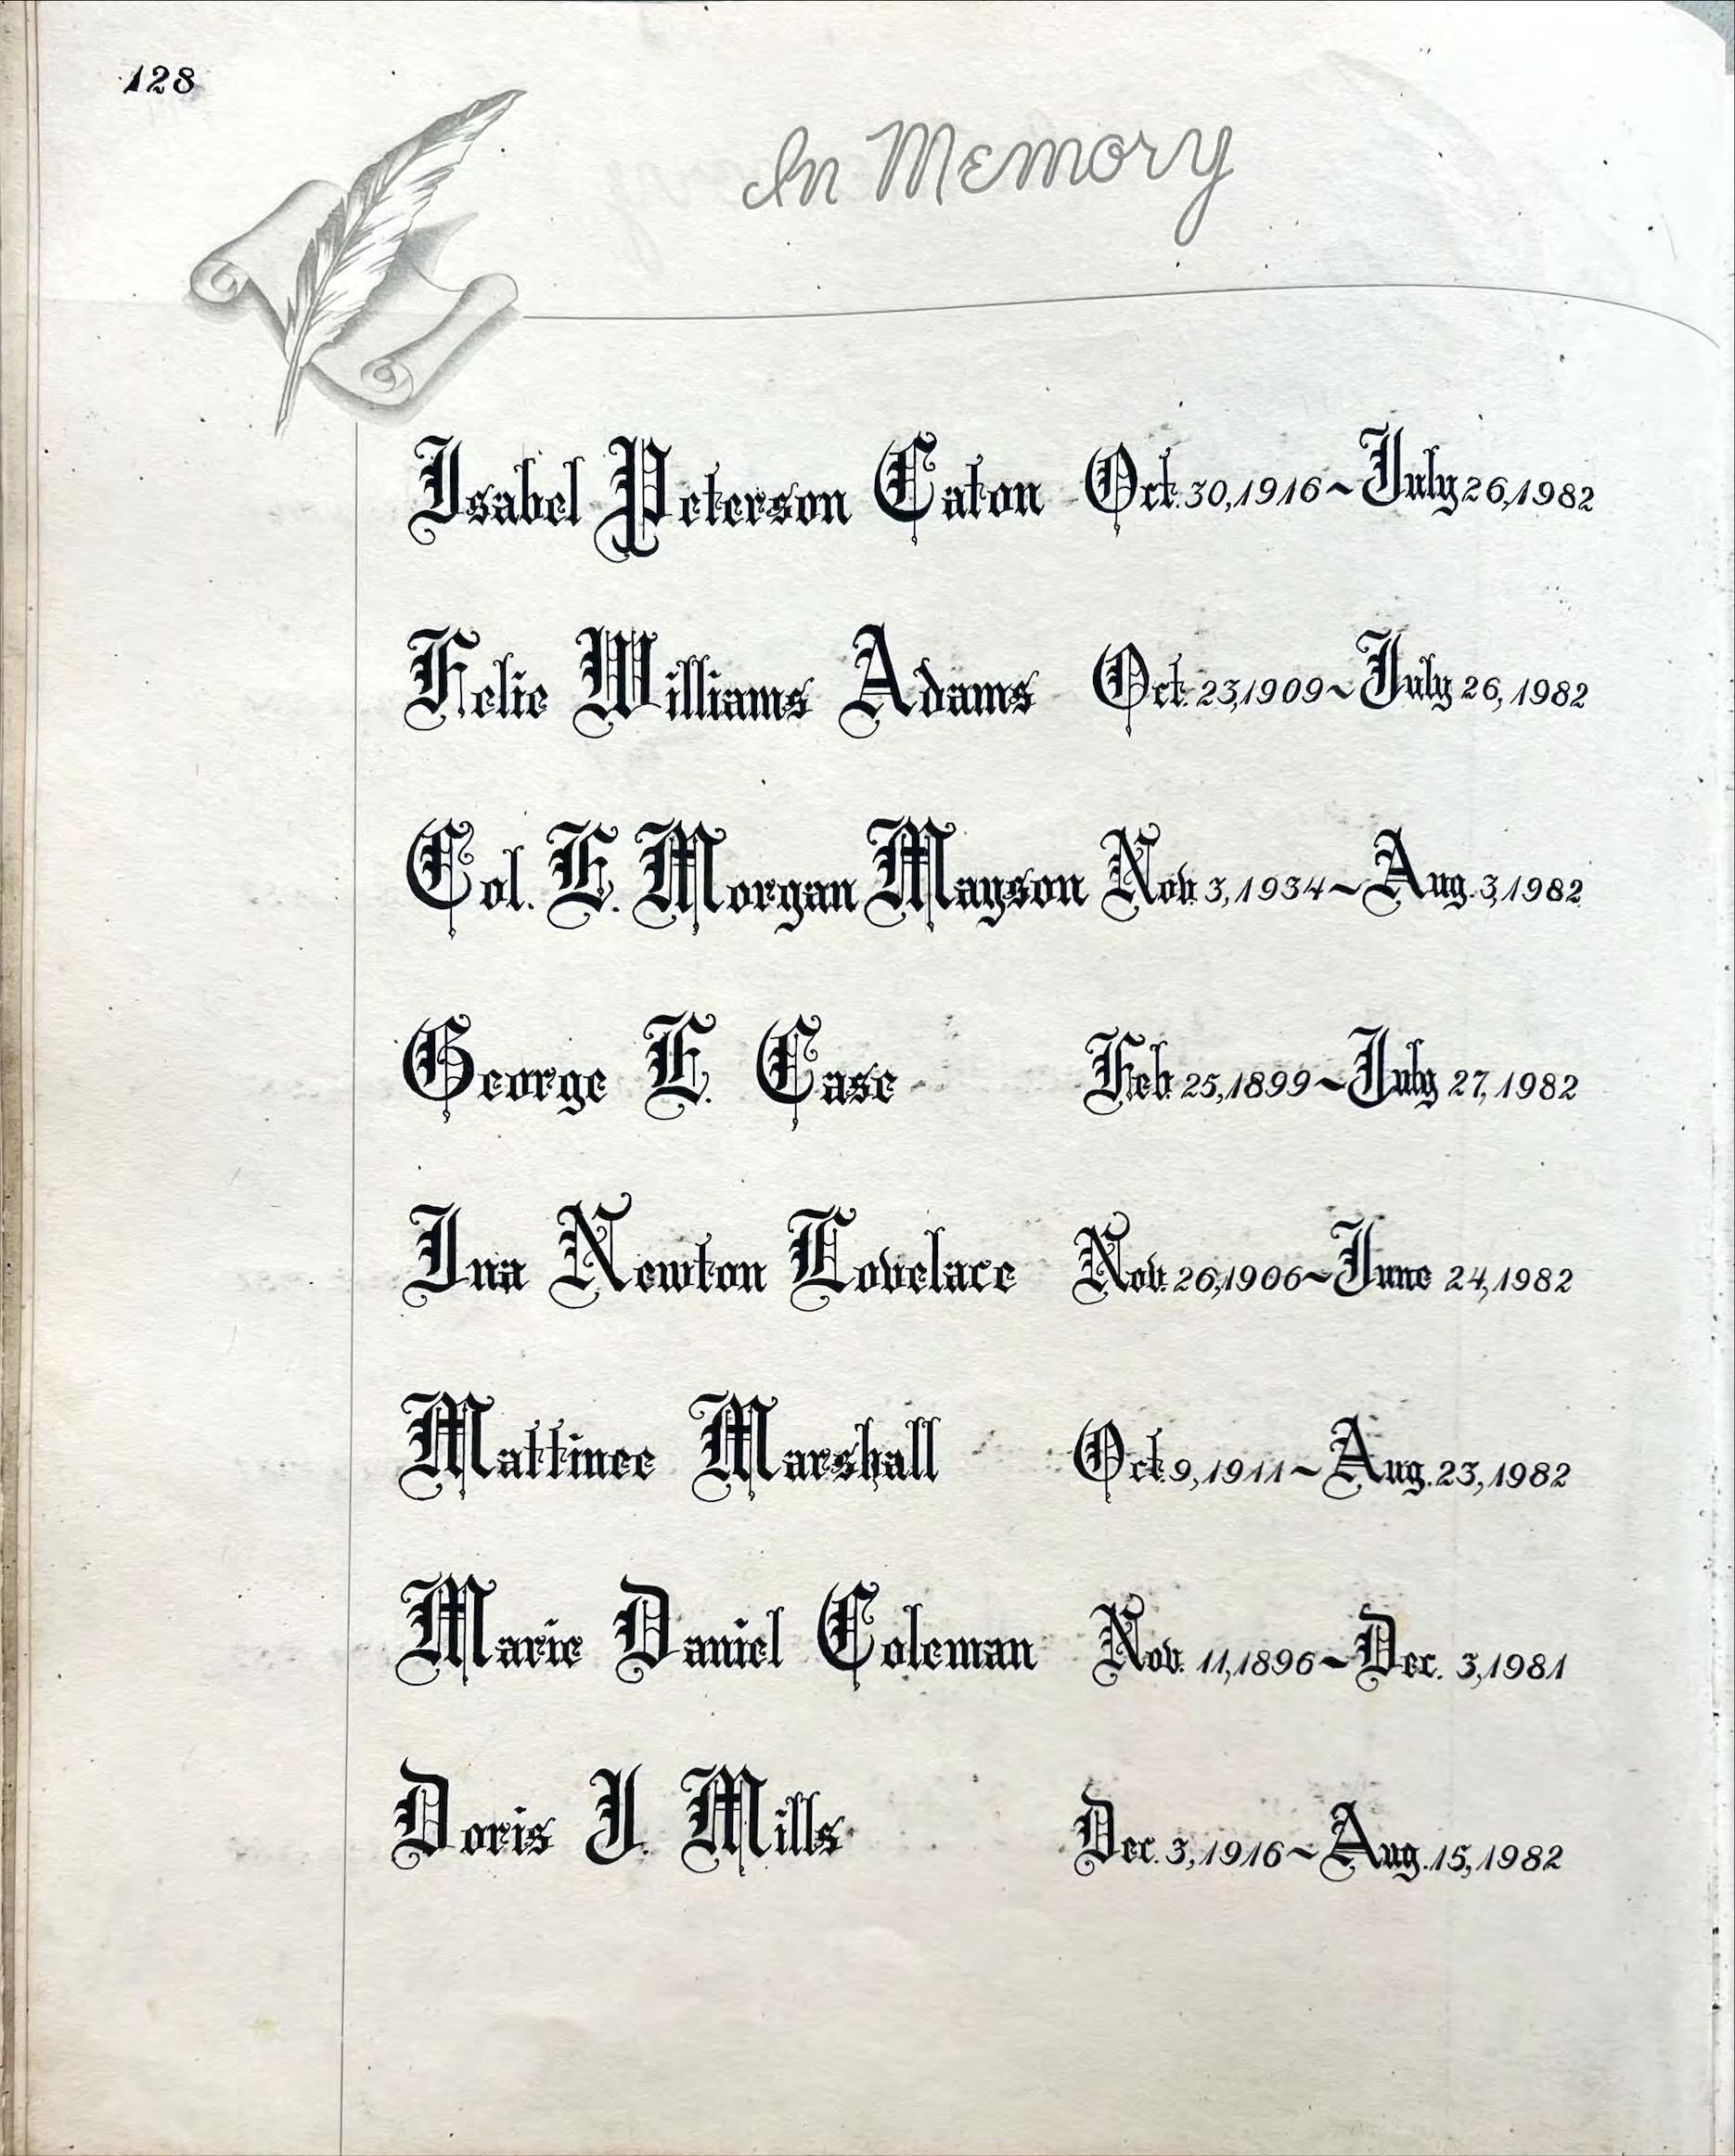 128
In Memory
Isabel Peterson Caton Oct. 30, 1916 ~ July 26, 1982
Felie Williams Adams Oct. 23, 1909 ~ July 26, 1982
Col. L. Morgan Mayson Nov. 3, 1934 ~ Aug. 3, 1982
George L. Case Feb. 25, 1899 ~ July 27, 1982
Ina Newton Lovelace Nov. 26, 1906 ~ June 24, 1982
Mattinee Marshall Oct. 9, 1911 ~ Aug. 23, 1982
Marie Daniel Coleman Nov. 11, 1896 ~ Dec. 3, 1981
Doris J. Mills Dec. 3, 1916 ~ Aug. 15, 1982